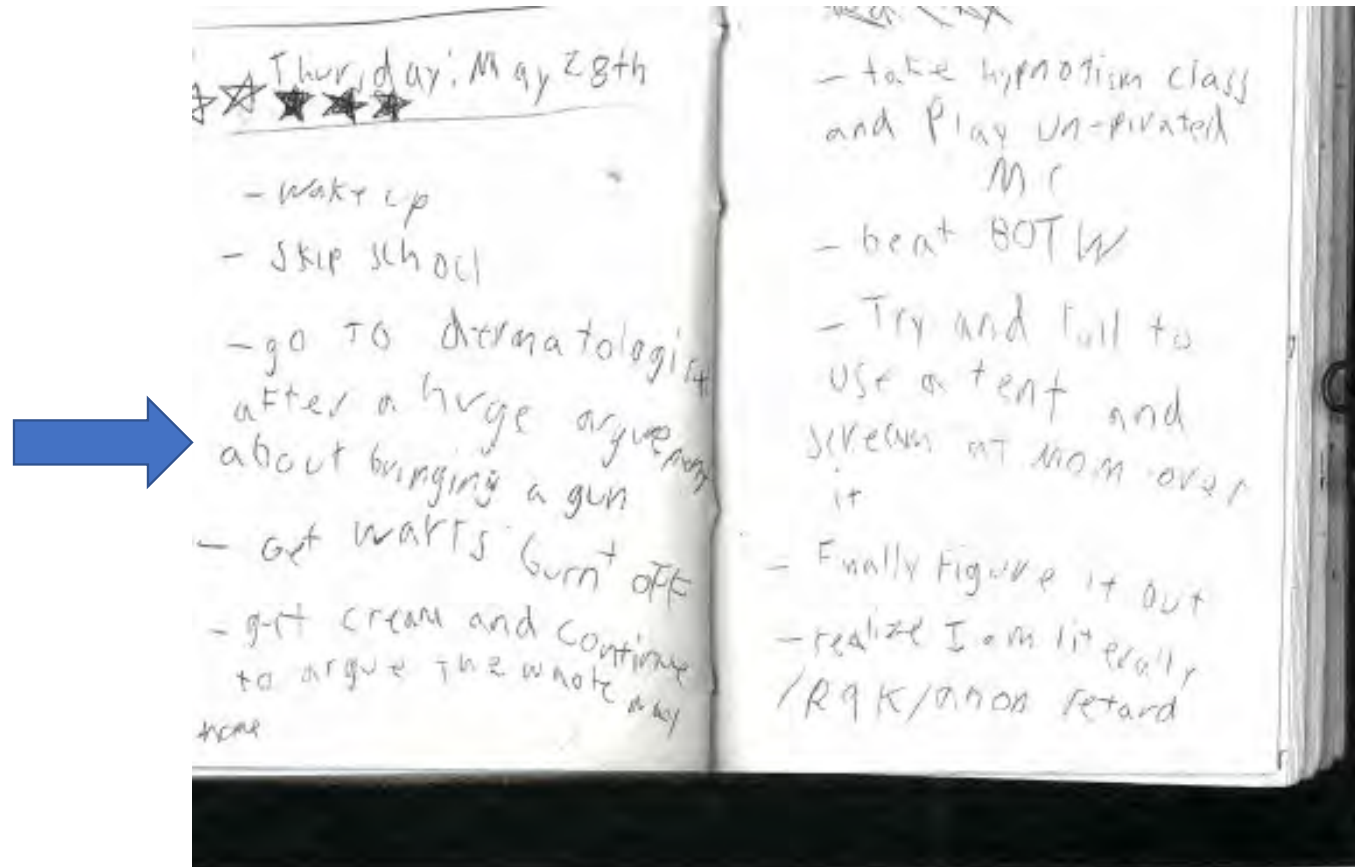 Thursday: May 28th
- wake up
- skip school
- go to dermatologist
after a huge arguement
about bringing a gun
- Get warts burnt off
- get cream and continue
to argue the whole way
home
- take hypnotism class
and Play un-pirated
MC
- beat BOTW
- Try and fail to
use a tent and
scream at mom over
it
- Finally figure it out
- realize I am literally
/R9K/anon retard